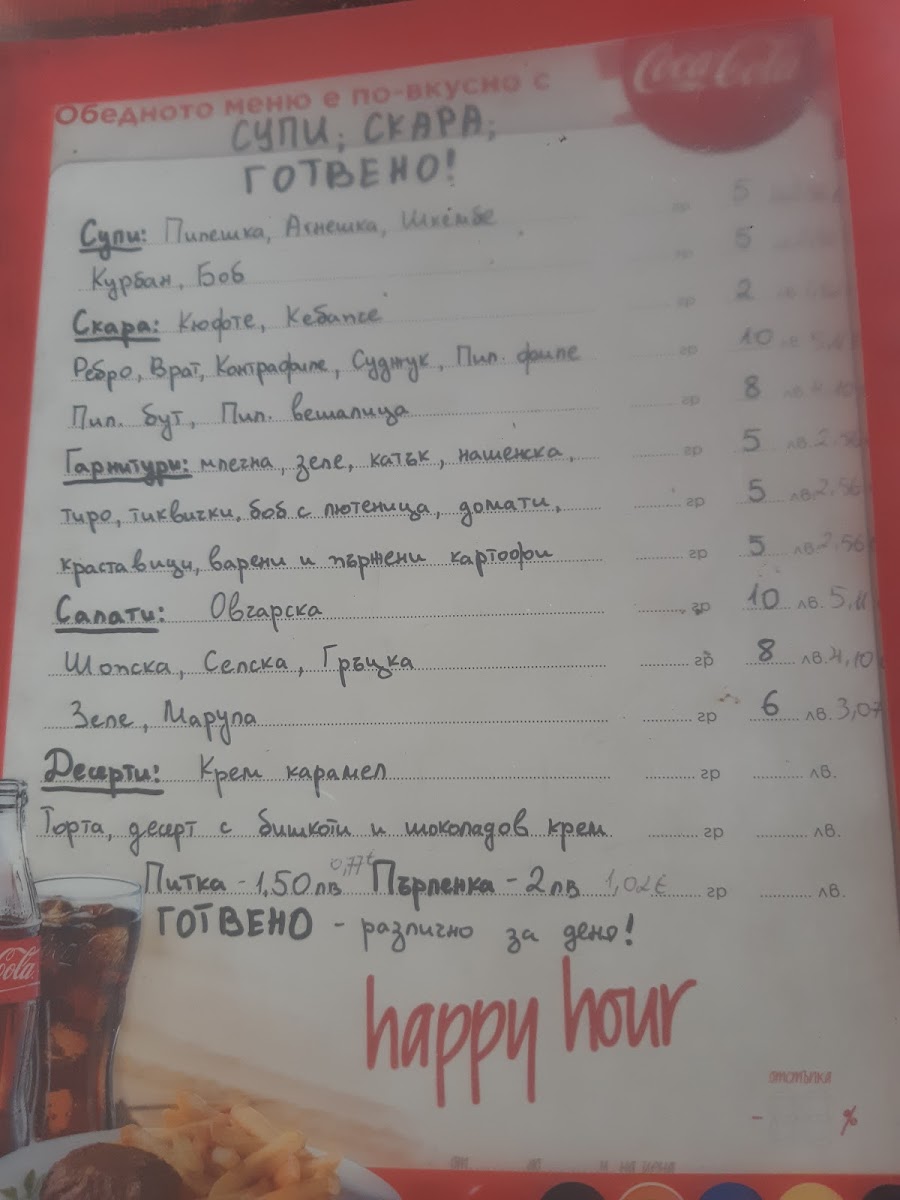 Coca-Cola
Обедното меню е по-вкусно с
СУПИ; СКАРА;
ГОТВЕНО!
Супи: Пилешка, Агнешка, Шкембе гр 5
Курбан, Боб гр 5
Скара: Кюфте, Кебапче гр 2
Ребро, Врат, Контрафиле, Суджук, Пил. филе гр 10 лв. 5,11
Пил. бут, Пил. вешалица гр 8 лв. 4,10
Гарнитури: млечна, зеле, катък, нашенска, гр 5 лв. 2,56
тиро, тиквички, боб с лютеница, домати, гр 5 лв. 2,56
краставици, варени и пържени картофи гр 5 лв. 2,56
Салати: Овчарска гр 10 лв. 5,11
Шопска, Селска, Гръцка гр 8 лв. 4,10
Зеле, Марула гр 6 лв. 3,07
Десерти: Крем карамел гр лв.
Торта, десерт с бишкоти и шоколадов крем гр лв.
Питка - 1,50лв 0,77€ Пърленка - 2лв 1,02€ гр лв.
ГОТВЕНО - различно за деня!
happy hour
отстъпка
- %
от до ч на цена
Cola